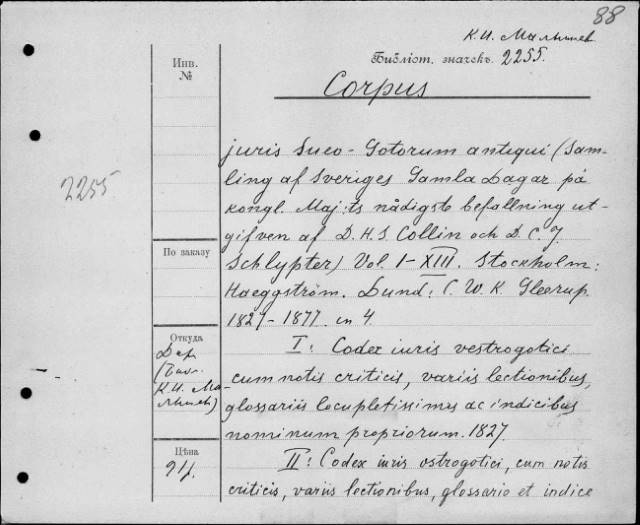 88
К.И. Малышев
Библіот. значекъ 2255.
Инв.
№
Corpus
2255
juris Sueo-Gotorum antiqui (Sam-
ling af Sveriges Gamla Lagar på
kongl. Maj:ts nådigste befallning ut-
gifven af D. H. S. Collin och D. C. J.
Schlypter) Vol. I-XIII. Stockholm:
Haeggström. Lund: C. W. K. Gleerup.
1827-1877. in 4.
По заказу
Откуда
Дар
(Библ.
К.И. Ма-
лышев)
Цѣна
I: Codex iuris vestrogotici
cum notis criticis, variis lectionibus,
glossariis locupletissimes ac indicibus
nominum propriorum. 1827.
II: Codex iuris ostrogotici, cum notis
criticis, variis lectionibus, glossario et indice